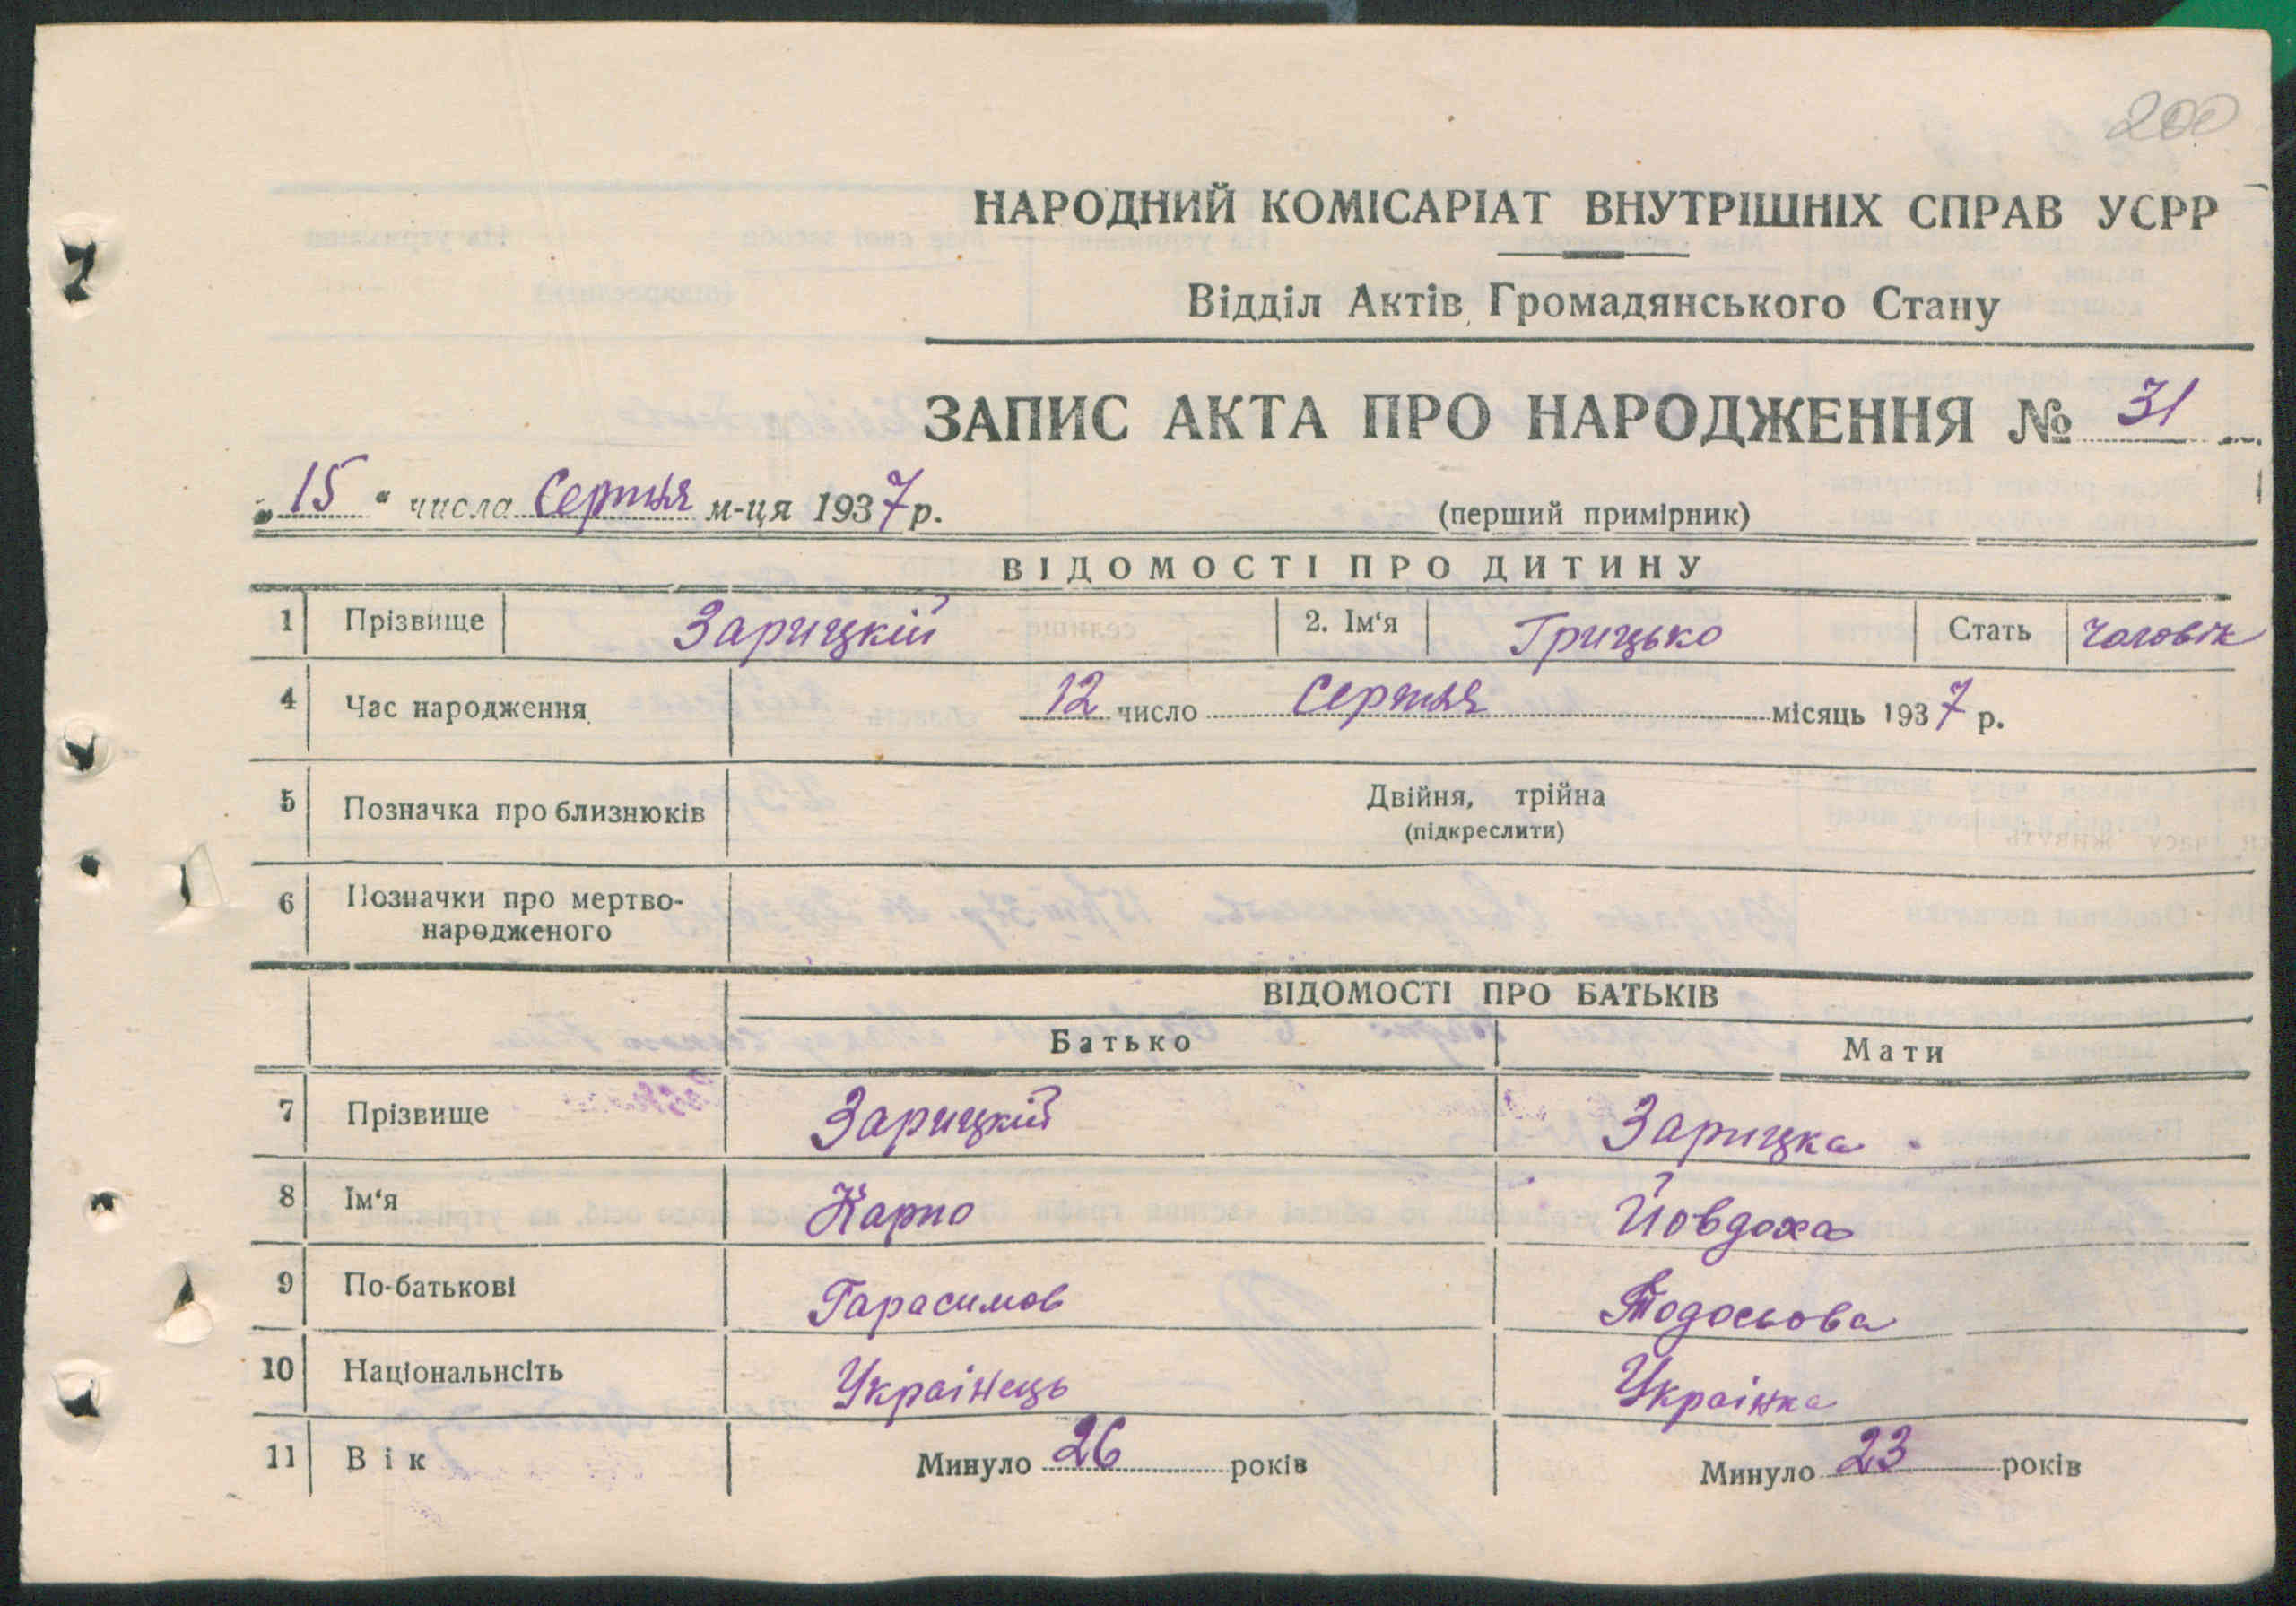 200
НАРОДНИЙ КОМІСАРІАТ ВНУТРІШНІХ СПРАВ УСРР
Відділ Актів Громадянського Стану
ЗАПИС АКТА ПРО НАРОДЖЕННЯ № 31
„15“ числа Серпня м-ця 1937 р.
(перший примірник)
ВІДОМОСТІ ПРО ДИТИНУ
1 Прізвище Зарицкій 2. Ім‘я Грицько Стать чоловік
4 Час народження 12 число Серпня місяць 1937 р.
5 Позначка про близнюків Двійня, трійна
(підкреслити)
6 Позначки про мертво-
народженого
ВІДОМОСТІ ПРО БАТЬКІВ
Батько Мати
7 Прізвище Зарицкій Зарицка
8 Ім‘я Карпо Йовдоха
9 По-батькові Гарасимов Тодосьова
10 Національнсіть Украінець Украінка
11 Вік Минуло 26 років Минуло 23 років